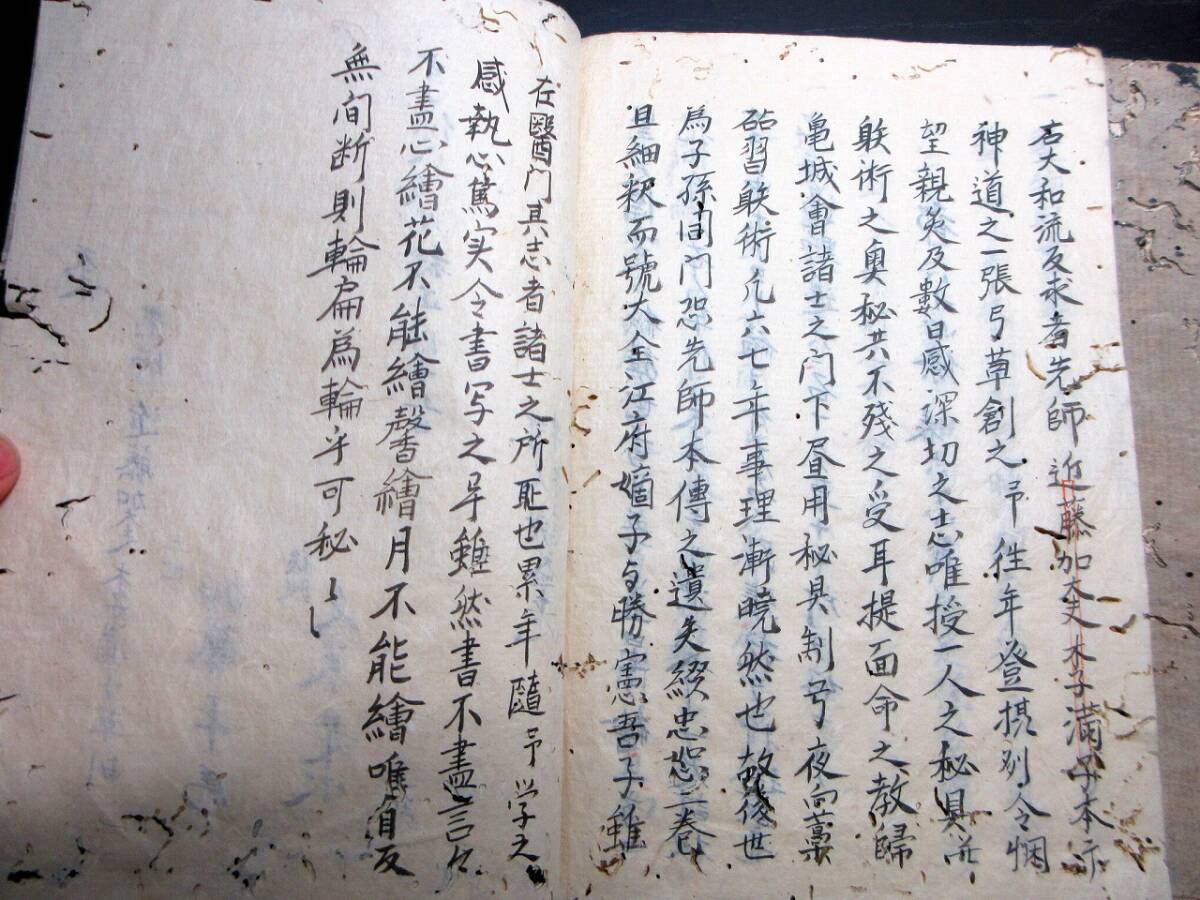 右大和流反求者先師近藤加大夫木子満字本示
神道之一張弓草創之予往年登摂別令悃
望親炙及數日感深切之志唯授一人之秘具
躾術之奥秘共不残之受耳提面命之教歸
亀城會諸士之門下昼用秘具制号夜向藁
砧習躾術凡六七年事理漸曉然也幾後世
為子孫同門恐先師本傳之遺失綴忠恕二卷
且細釈而號大全江府嫡子与勝憲吾子雖
在醫門其志者諸士之所耻也累年隨予学之
感執心篤実令書写之早雖然書不盡言々
不盡心繪花不能繪馨繪月不能繪唯自反
無间断則輪扁為輪乎可秘〻